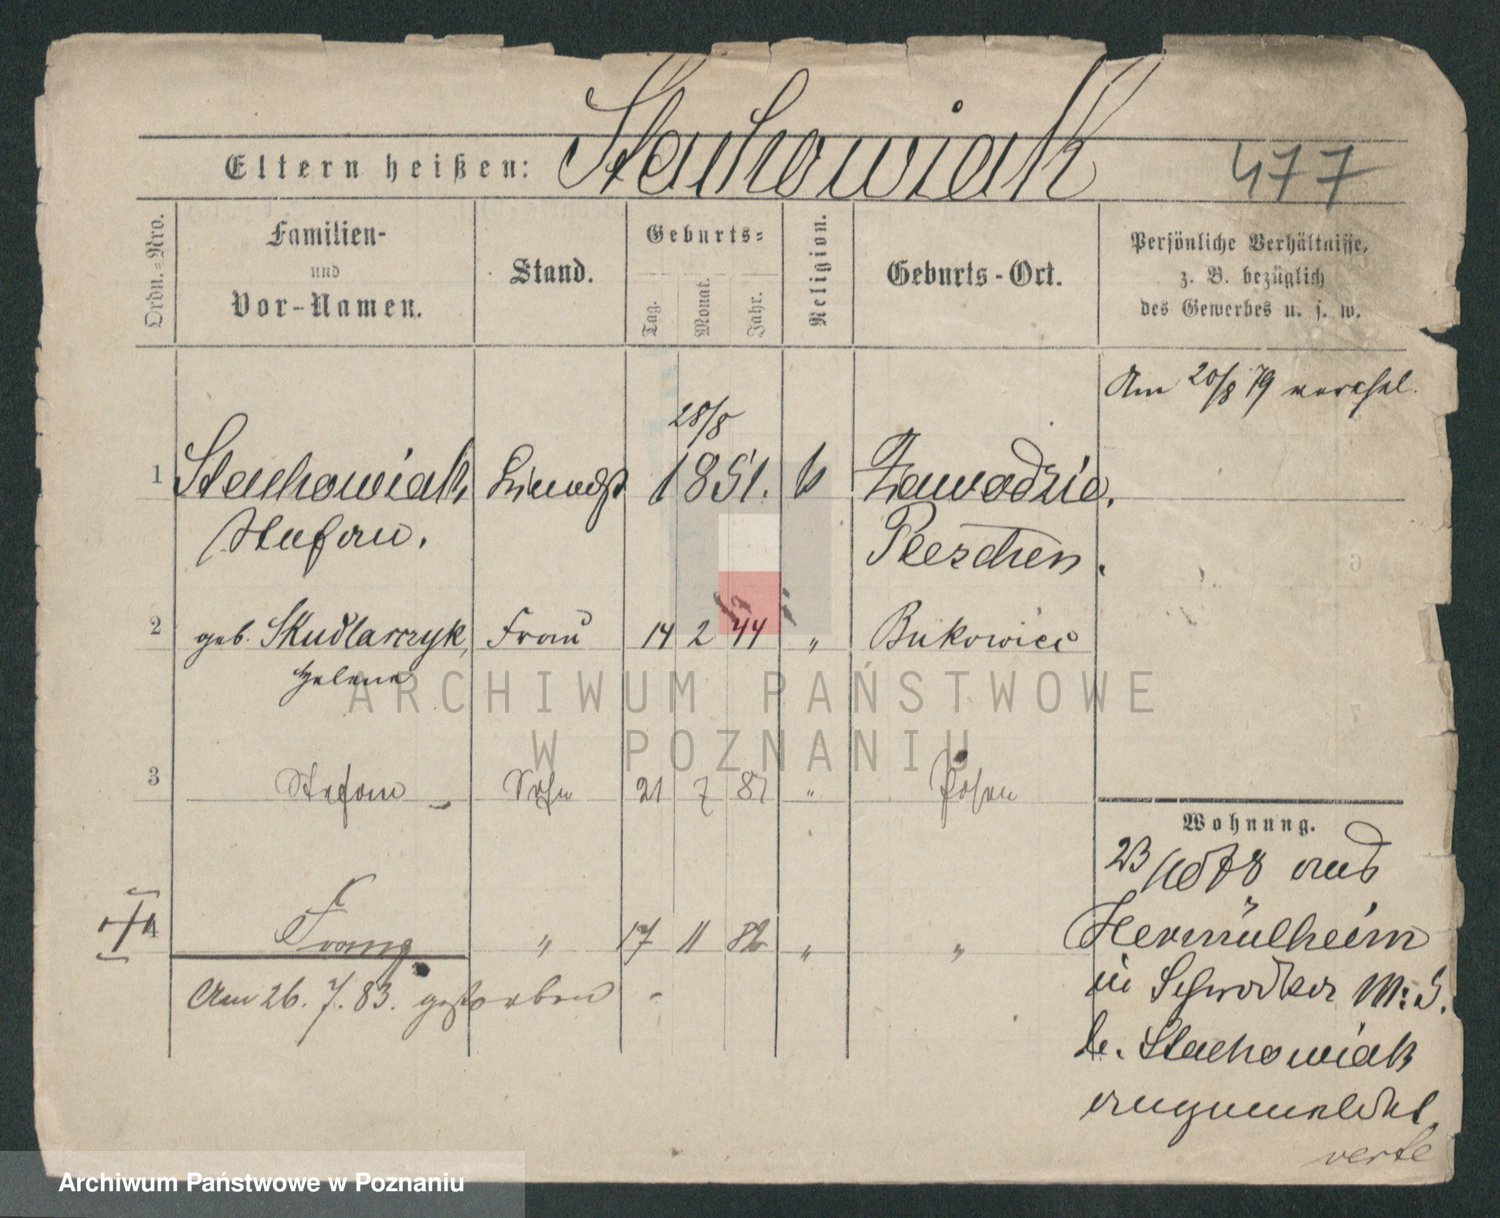 Eltern heißen: Stachowiak 477
Ordn.=Nro.
Familien-
und
Vor-Namen.
Stand.
Geburts=
Tag.
Monat.
Jahr.
Religion.
Geburts-Ort.
Persönliche Verhältnisse,
z. B. bezüglich
des Gewerbes u. s. w.
Am 20/8 79 verehel.
28/8
1 Stachowiak, 1851. k Zawodzie.
Stefan. Pleschen.
2 geb. Skudlarczyk, Frau 14 2 44 „ Bukowiec
Helene
3 Stefan Sohn 21 7 81 „ Posen
Wohnung.
23/10 78 aus
4 Franz „ 17 11 82 „ „
Hermülheim
Am 26. 7. 83. gestorben
in
b. Stachowiak
angemeldet
verte
ARCHIWUM PAŃSTWOWE
W POZNANIU
Archiwum Państwowe w Poznaniu